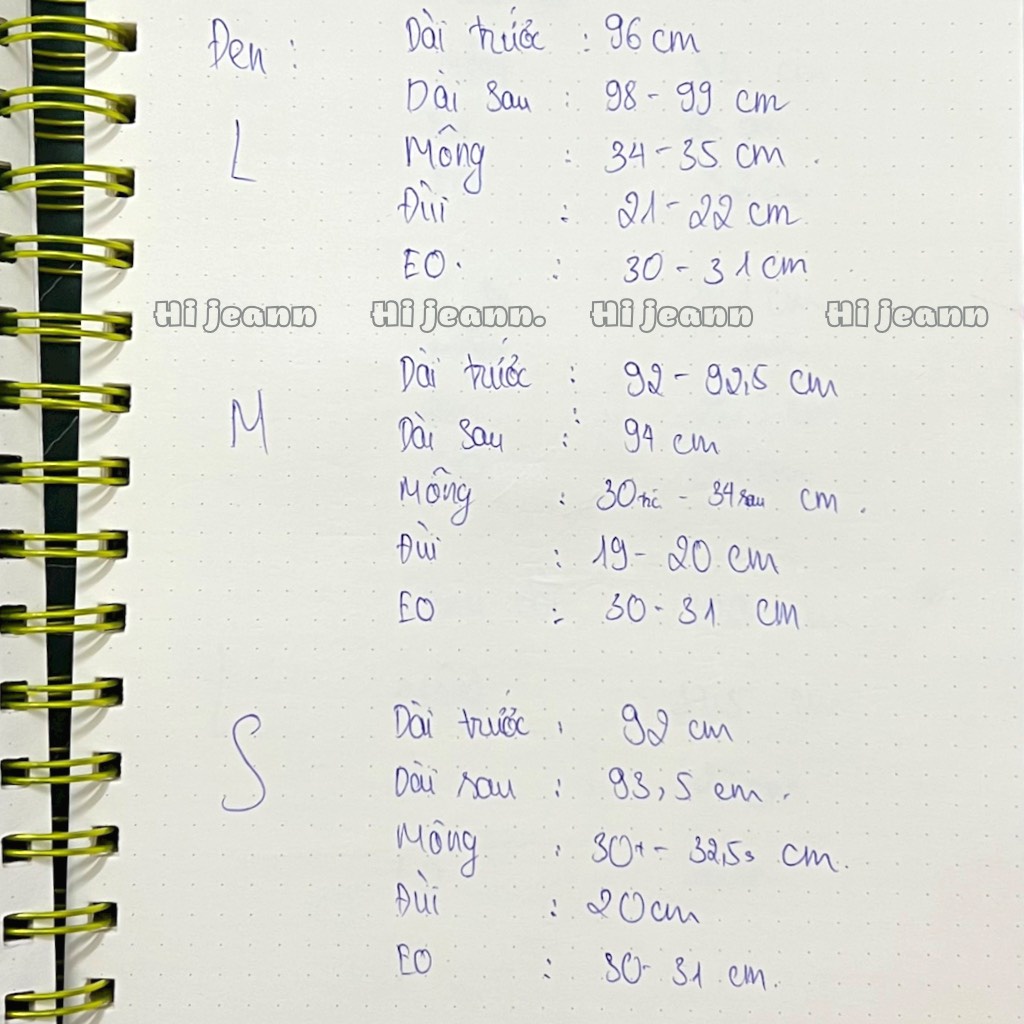 Đen : Dài trước : 96 cm
Dài sau : 98 - 99 cm
L Mông : 34 - 35 cm .
Đùi : 21 - 22 cm
EO . : 30 - 31 cm
Hi jeann Hi jeann. Hi jeann Hi jeann
Dài trước : 92 - 92,5 cm
M Dài sau : 94 cm
Mông : 30 trc - 34 sau cm .
Đùi : 19 - 20 cm
EO : 30 - 31 cm
S Dài trước : 92 cm
Dài sau : 93,5 cm .
Mông : 30t - 32,5s cm .
Đùi : 20 cm
EO : 30 - 31 cm .